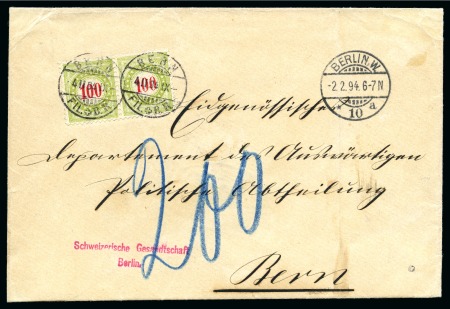 BERN
100
FIL.BR.
BERN
100
FIL.BR.
BERLIN.W.
-2.2.94.6-7N
10 a
Eidgenössisches
Departement des Auswärtigen
Politische Abtheilung
200
Schweizerische Gesandtschaft
Berlin.
Bern